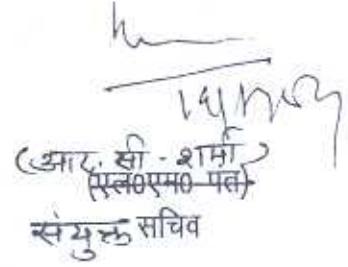 (आर. सी. शर्मा)
(एल0एम0 पंत)
संयुक्त सचिव